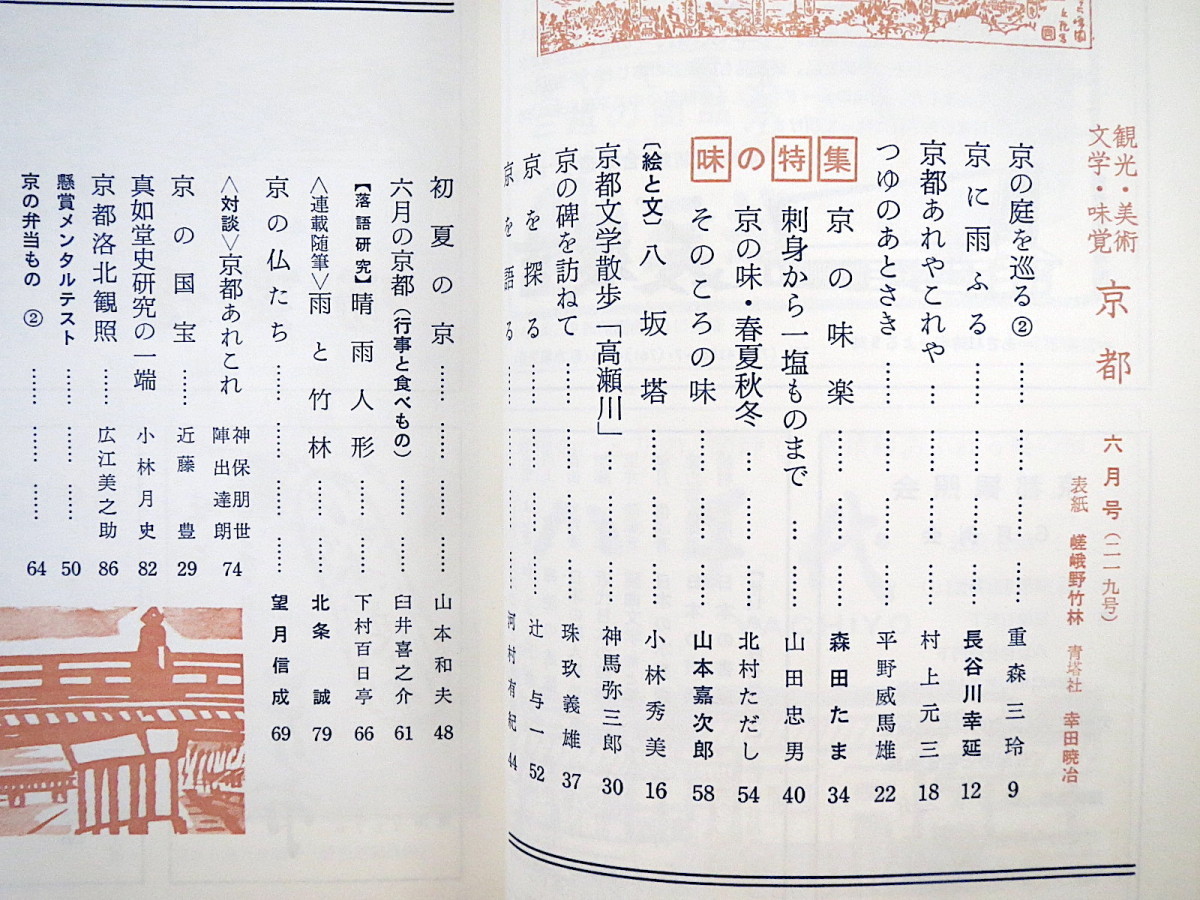 観光・美術
文学・味覚
京都
六月号(二一九号)
表紙 嵯峨野竹林 青塔社 幸田暁冶
京の庭を巡る②……………重森三玲 9
京に雨ふる……………長谷川幸延 12
京都あれやこれや……………村上元三 18
つゆのあとさき……………平野威馬雄 22
味の特集
京の味楽……………森田たま 34
刺身から一塩ものまで……………山田忠男 40
京の味・春夏秋冬……………北村ただし 54
そのころの味……………山本嘉次郎 58
〔絵と文〕八坂塔……………小林秀美 16
京都文学散歩「高瀬川」……………神馬弥三郎 30
京の碑を訪ねて……………珠玖義雄 37
京を探る……………辻与一 52
京を語る……………河村有紀 44
初夏の京……………山本和夫 48
六月の京都(行事と食べもの)……………臼井喜之介 61
【落語研究】晴雨人形 下村百日亭 66
<連載随筆>雨と竹林……北条誠 79
京の仏たち……………望月信成 69
<対談>京都あれこれ 神保朋世 陣出達朗 74
京の国宝……近藤豊 29
真如堂史研究の一端 小林月史 82
京都洛北観照……広江美之助 86
懸賞メンタルテスト……………50
京の弁当もの②……………64